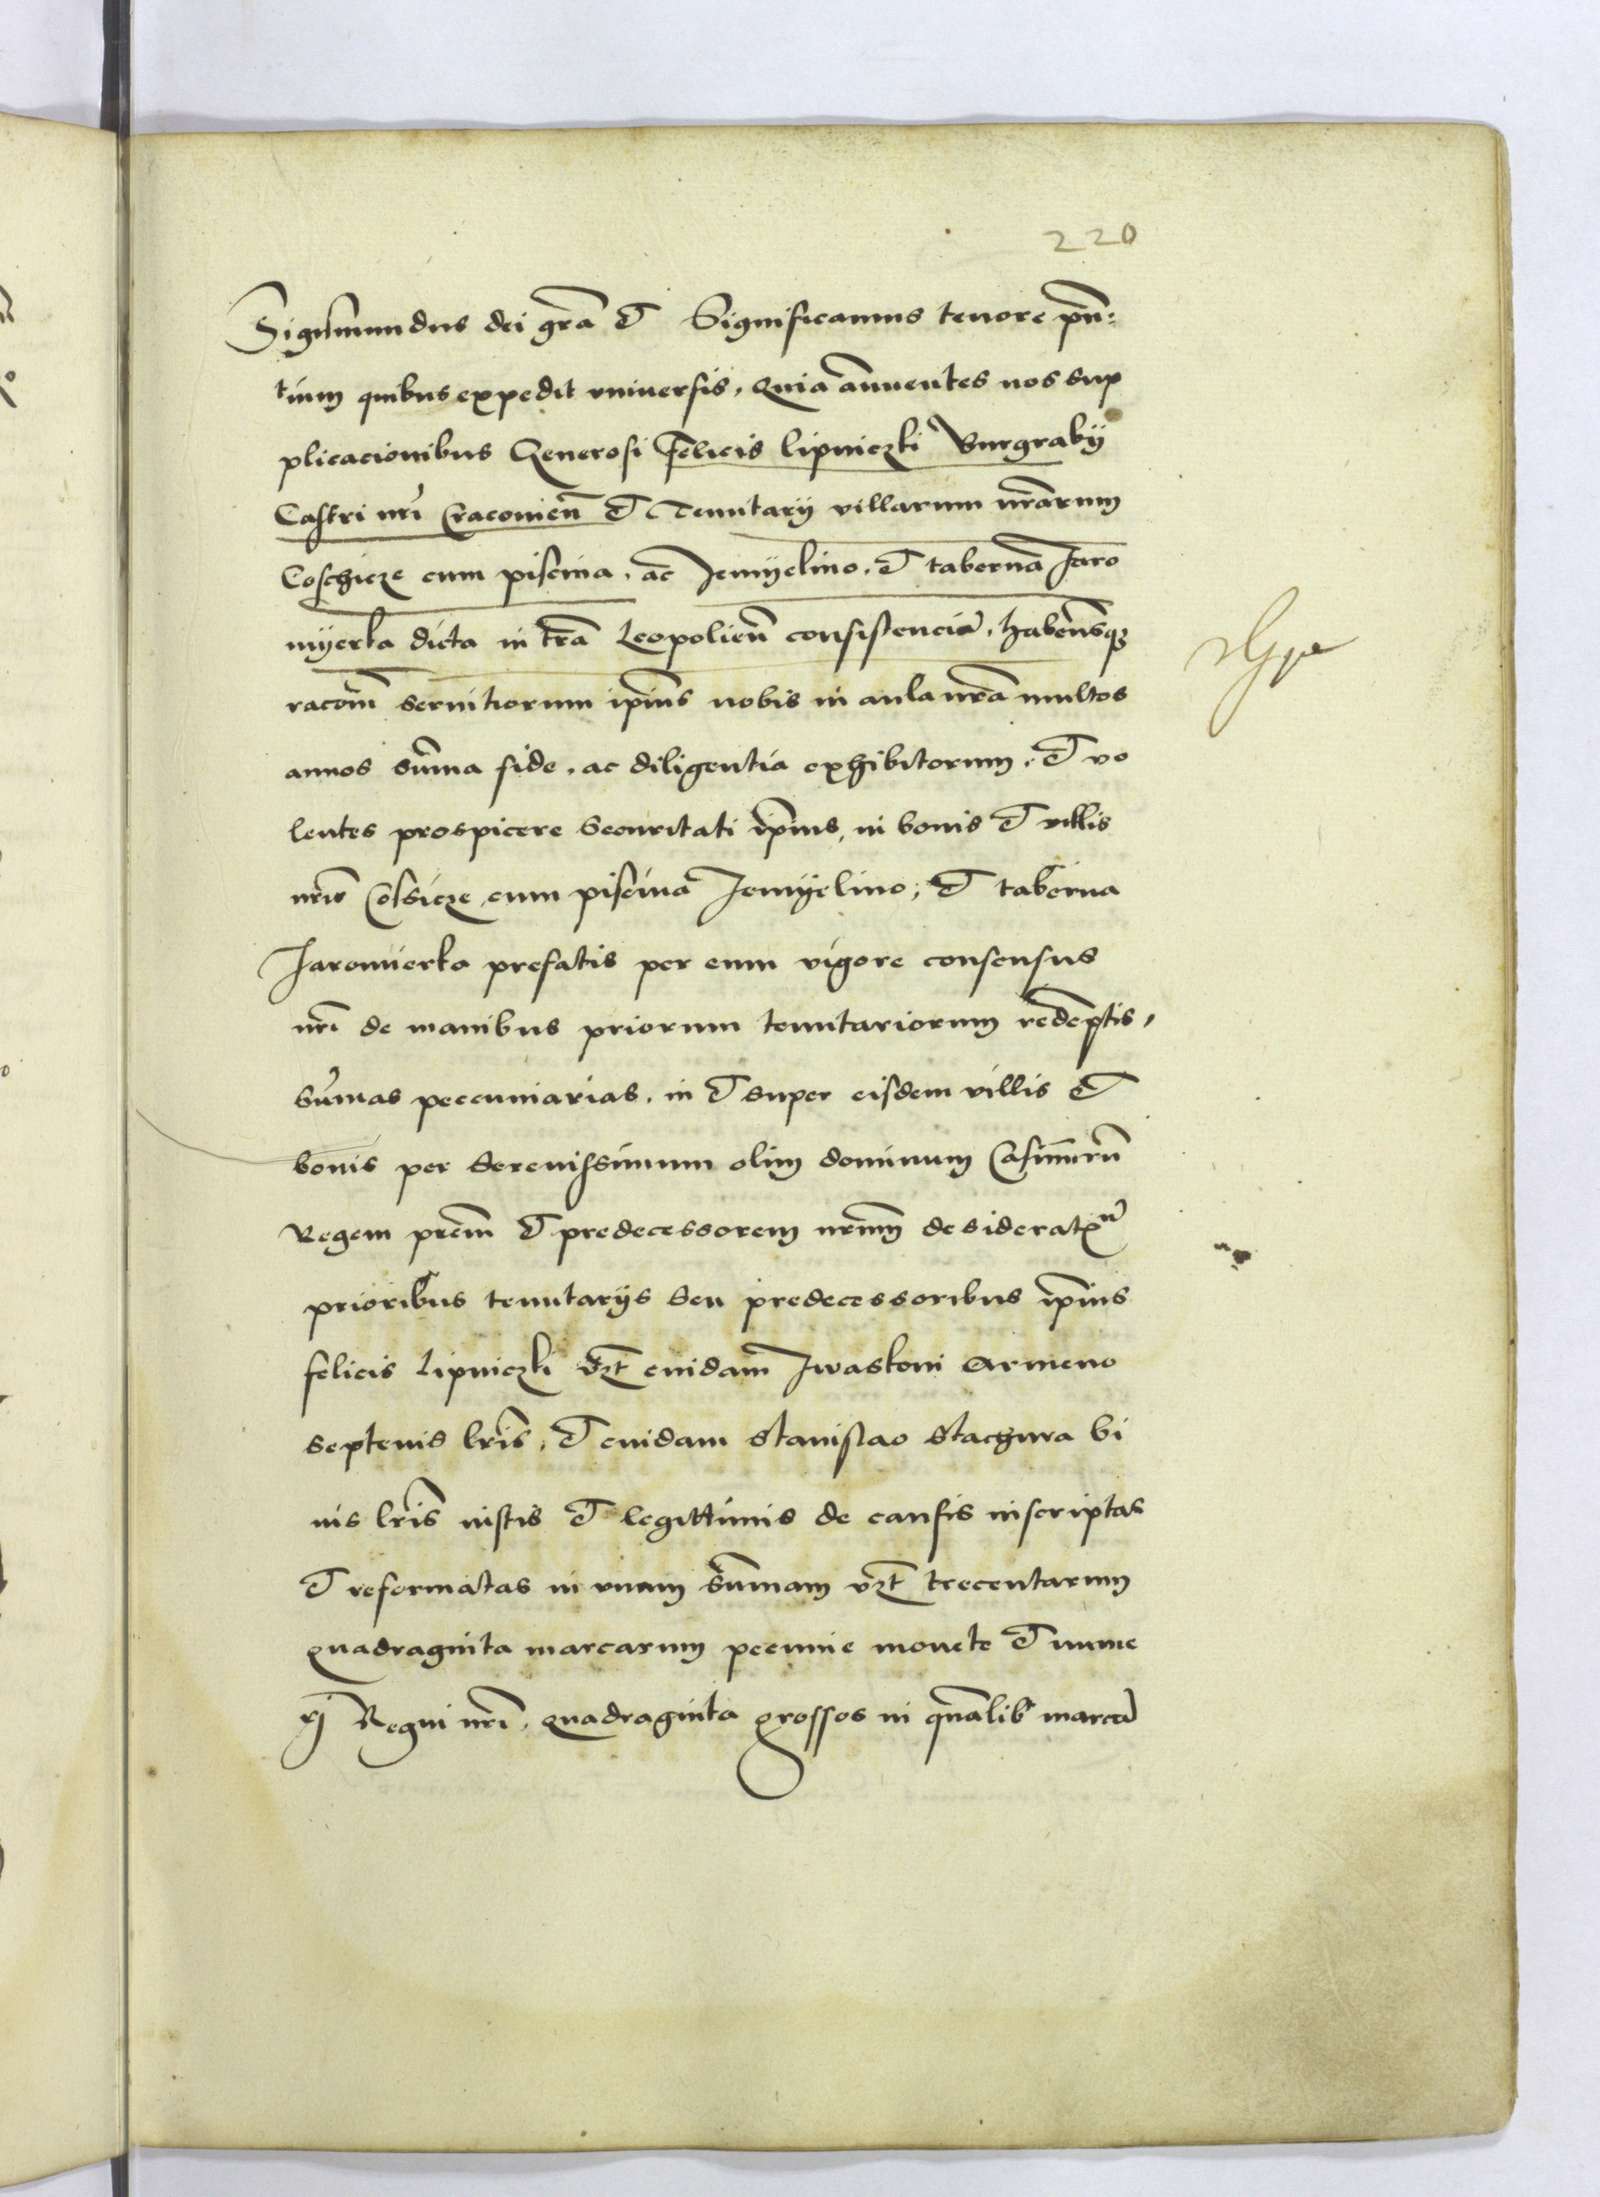 220
Sigismundus dei gra et Significamus tenore pn̄:
tium quibus expedit vniuersis, Quia annuentes nos sup
plicacionibus Generosi Felicis Lipniczki Burgrabij
Castri nri Cracouien̄ et Tenutarij villarum nrarum
Coschicze cum piscina, ac Jemyelino, et taberna Jaro
myerka dicta in tra Leopolien̄ consistencia, habentesq3
racom̄ seruitiorum ipius nobis in aula nra multos
annos summa fide, ac diligentia exhibitorum, et vo
lentes prospicere securitati ipius, in bonis et villis
nris Cossicze cum piscina Jemyelino, et taberna
Jaromierka prefatis per eum vigore consensus
nri de manibus priorum tenutariorum redemptis,
sum̄as peccuniarias, in et super eisdem villis et
bonis per Serenissimum olim dominum Casimirū
Regem prem̄ et predecessorem nrum̄ desideratx̄
prioribus tenutarijs seu predecessoribus ipius
felicis Lipniczki vzt cuidam Jwaskoni Armeno
septenis lris, et cuidam Stanislao Stachura bi
nis lris iustis et legittimis de causis inscriptas
et reformatas in vnam sum̄am vzt trecentarum
quadraginta marcarum pecunie monete et nume
rj Regni nri, quadraginta grossos in qualib̄ marca